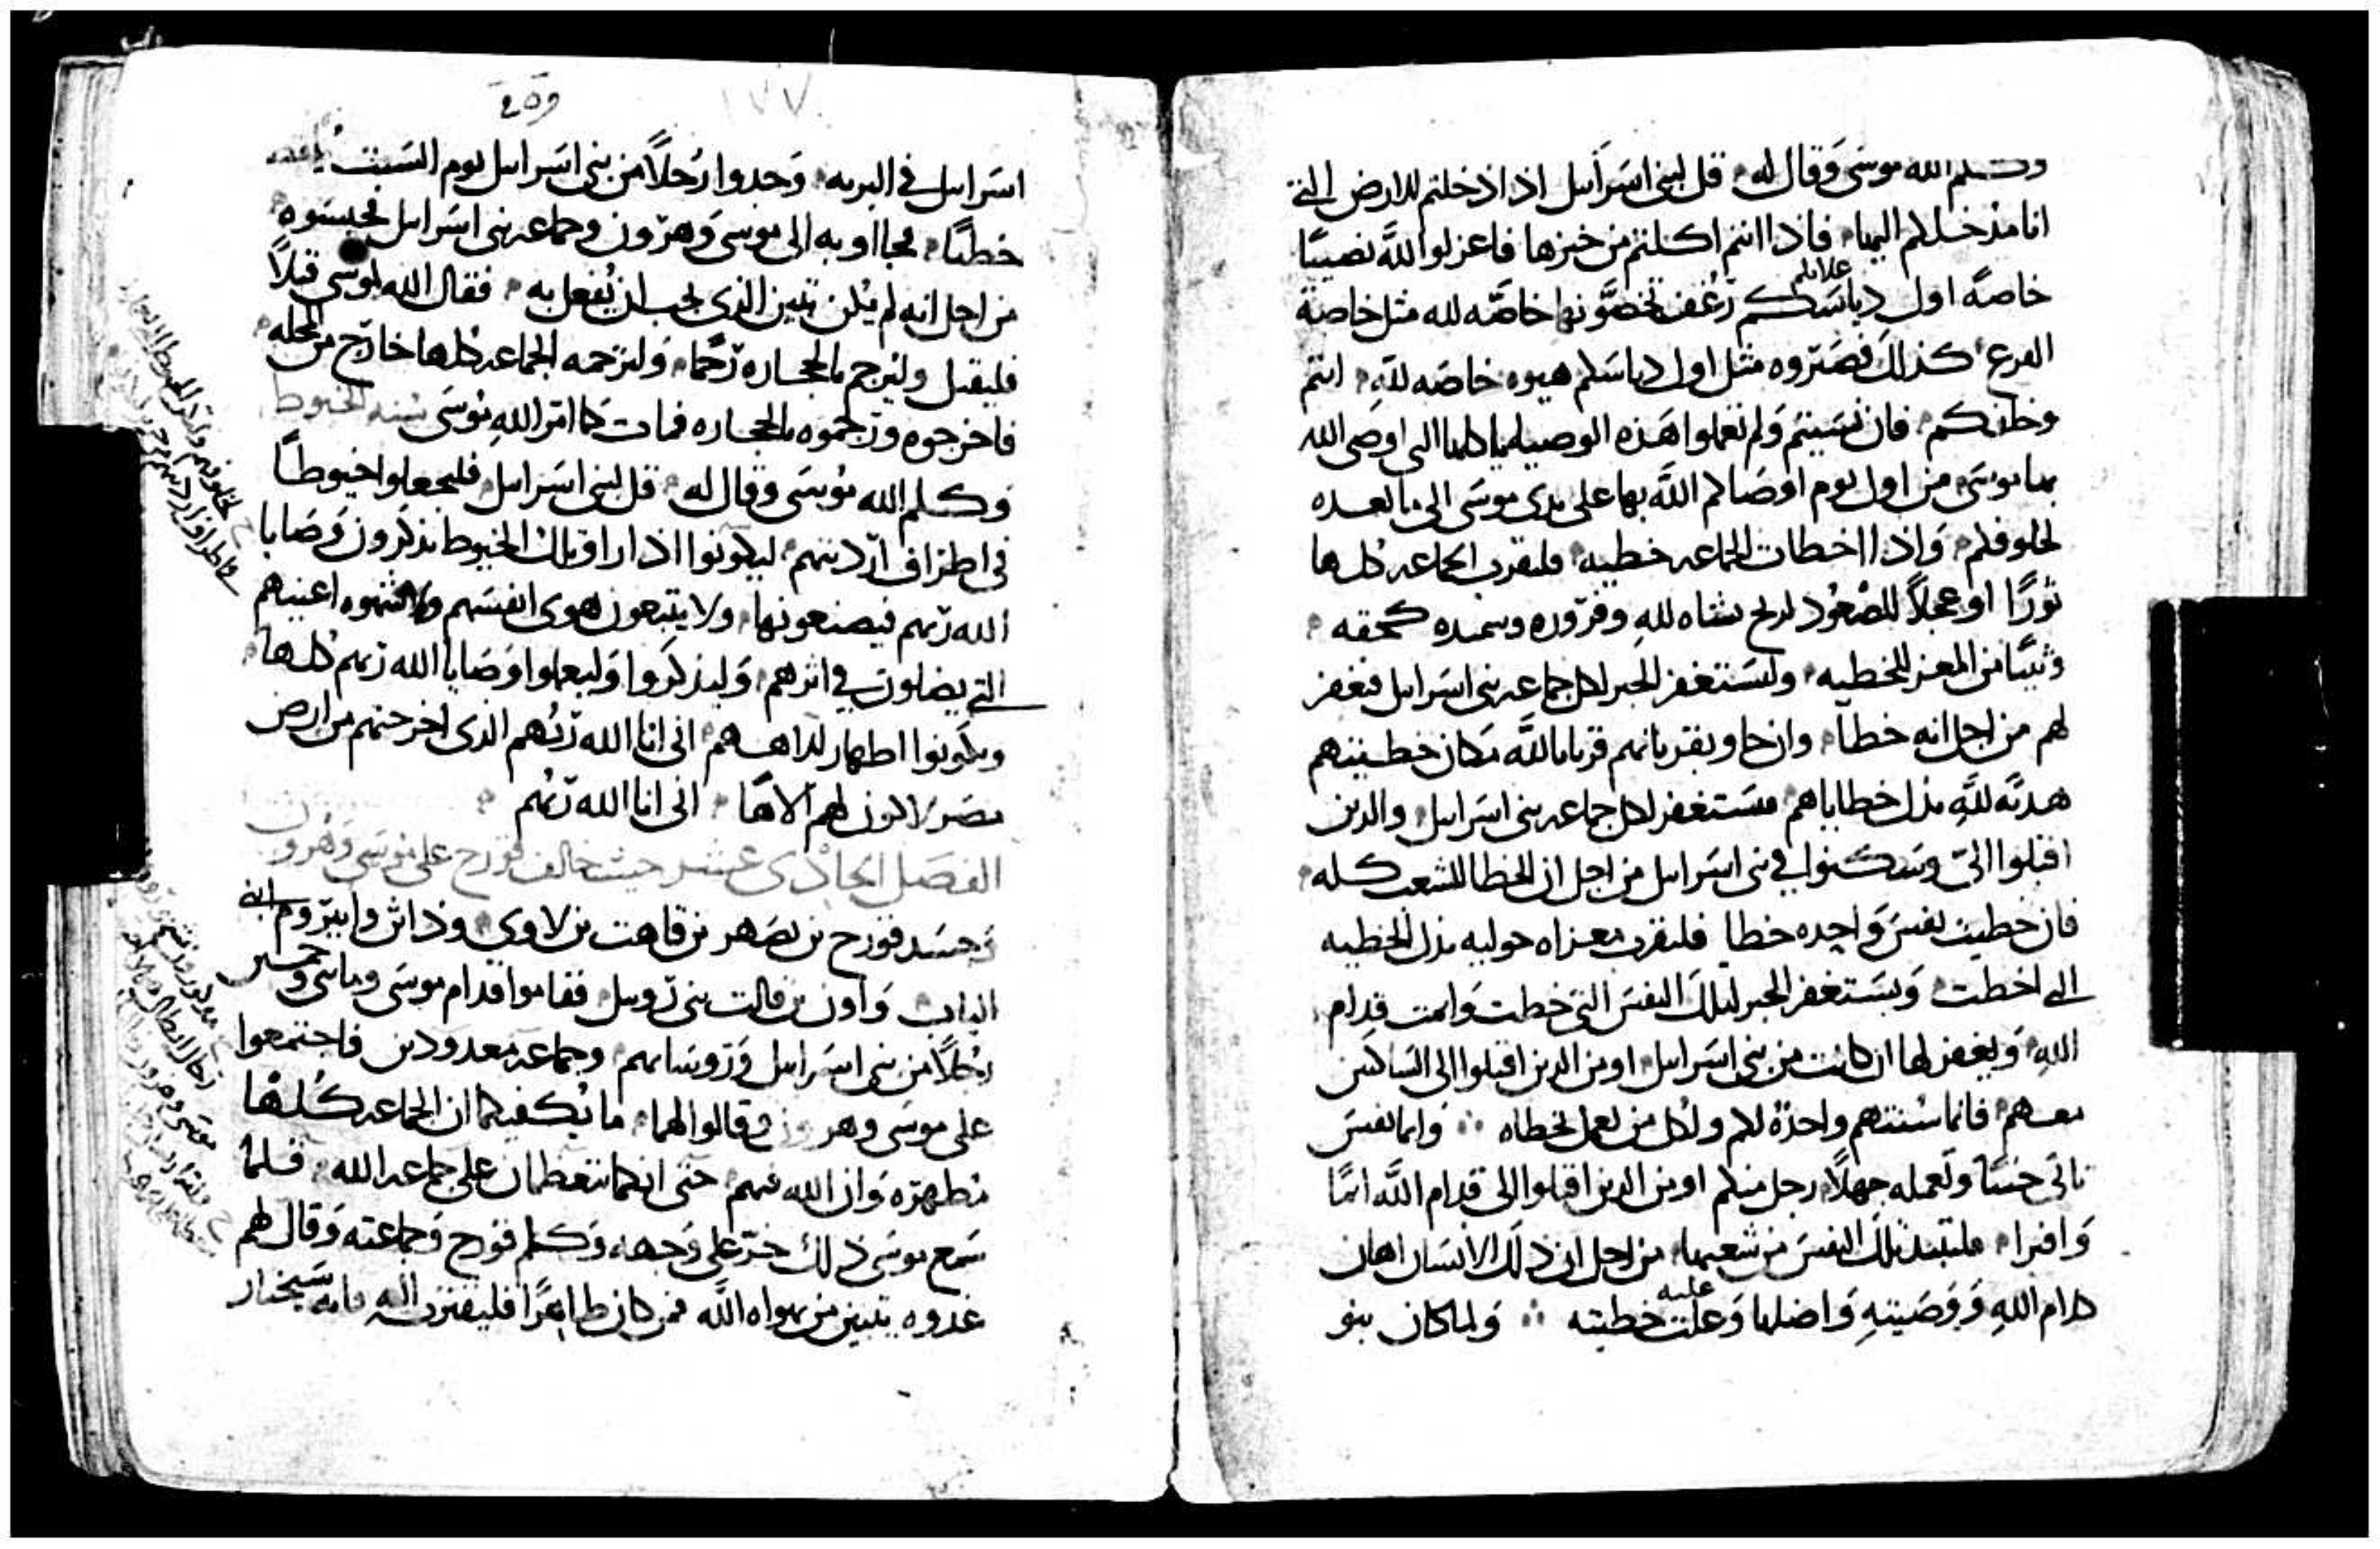 وكلم الله موسى وقال له قل لبني اسرَآىيل اذا دخلتم للارض التي
انا مدخلكم اليها فاذا انتم اكلتم من خبزها فاعزلوا للَّه نصيبًا
خاصةً اول دياسَكم رُغف تخصَّونها خاصّه لله مثل خاصة
علاتكم
الفرع كذلك فصَيّروه مثل اول دياسَكم هبوه خاصَه للّهِ انتم
وخلفكم فان نسَيتم وَلم تعملوا هَذه الوصيا كلها التى اوصَى الله
بها موسَى من اول يوم اوصَاكم اللَّه بها على يدى موسَى الى ما بعده
لخلوفكم وَاذا اخطات الجماعه خطيه فليقرب الجماعه كلها
ثورًا او عجلاً للصْعُود لريح نشاه للهِ وقرّوره وسميده كحقه
وثنيًا من المعز للخطيه وليسَتغفر الحبر لكل جماعه بنى اسَراىل فيغفر
لهم من اجل انه خطا وان جاو بقربانهم قربانا للَّه مكان خطيتهم
هديَه للَّهِ بدل خطاياهم فيسَتغفر لكل جماعه بنى اسَراىل والدين
اقبلوا الىّ وسَكنوا في بنى اسَراىل من اجل ان الخطا للشعب كله
فان خطيت نفسَ وَاحِده خطا فليقرب معزاه حوليه بدل الخطيه
التى اخطت وَيسَتغفر الحبر لتلكَ النفسَ التى خطت وَاثمت قدام
اللهِ وَيغفر لها ان كانت من بنى اسَراىل او من الدين اقبلوا الى السَاكنين
معهم فانما سُنتهم واحدَهُ لكم ولكل من يعمل بخطاه وَايما نفسَ
تاتى خبثًا وتعمله جهلاً رجل منكم او من الدين اقبلوا الى قدام اللَّه اثمًا
وَافترا فلتبد تلكَ النفسَ من شعبها من اجل ان ذلكَ الانسَان اهان
كلام اللهِ وَوَصَيتهِ وَاضلها وَعلت خطيته وَلما كان بنو
عليه
ووه
١٧٧
اسَراىل في البريه وَجدوا رَجُلاً من بنى اسَراىل يوم السَبت
خطبًا فجااو به الى موسى وَهرَون وجماعه بنى اسَراىل فحبسَوه
من اجل انه لم يُكن تبين الذى يجب ان يُفعل به فقال الله لموسَى قتلاً
فليقتل وليرجم بالحجاره رَجمًا وَلترجمه الجماعه كلها خارَج من المحله
فاخرجوه وَرَجموه بالحجاره فمات كما امَر اللهِ مُوسَى سُنة الخيوط
وَكلم الله مُوسَى وَقال له قل لبنى اسَراىل فليجعلوا خيوطًا
فى اطرَاف ارَديتهم ليكونوا اذا راو تلك الخيوط يذكَرون وَصَايا
الله رَبهم فيصنعونها ولا يتبعون هوى انفسَهم وَلا شهوه اعينهم
التى يضلون في اثرهم وَليذكَروا وَليعملوا وَصَايا الله رَبهم كلها
ويكونوا اطهار لالاههم انى انا الله رَبُهم الدى اخرجتهم من ارض
مصَر لاكون لهم آلاهًا انى انا الله رَبُهم
الفصَل الحَادى عشر حيث خالف قورَح على مُوسَى وَهرون
وَحسَد قورَح بن يصَهر بن قاهت بن لاوي وذاثن وابيرَوم ابنى
الياب وَاون بن فالت بنى رَوبيل فقاموا قدام موسَى ومايتى وخمسين
رجُلاً من بنى اسَراىل وَرَوسَايهم وجماعه معدودين فاجتمعوا
على موسَى وهرون وقالوا لهما ما يُكفيكما ان الجماعه كُلها
مُطهرَه وَان الله فيهم حتى انكما تتعظمان على جماعه الله فلمُا
سَمع موسَى ذلك خرَ على وَجهه وَكلم قورَح وَجماعته وَقال لهم
غدوه يتبين من يهواه اللَّه فمن كان طاهرًا فليقترب اليه فانه سَيختار